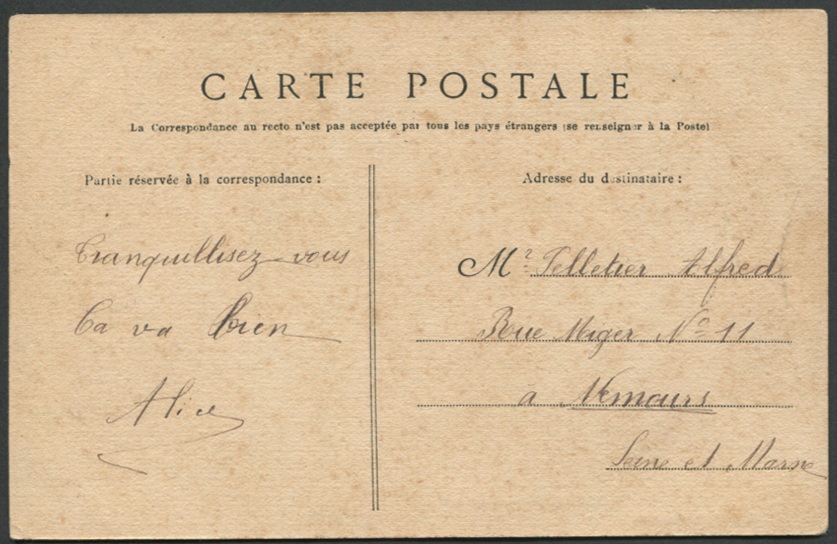 CARTE POSTALE
La Correspondance au recto n'est pas acceptée par tous les pays étrangers (se renseigner à la Poste)
Partie réservée à la correspondance :
Tranquillisez-vous
Ca va bien
Alice
Adresse du destinataire :
Mr Pelletier Alfred
Rue Miger No 11
a Nemours
Seine et Marne